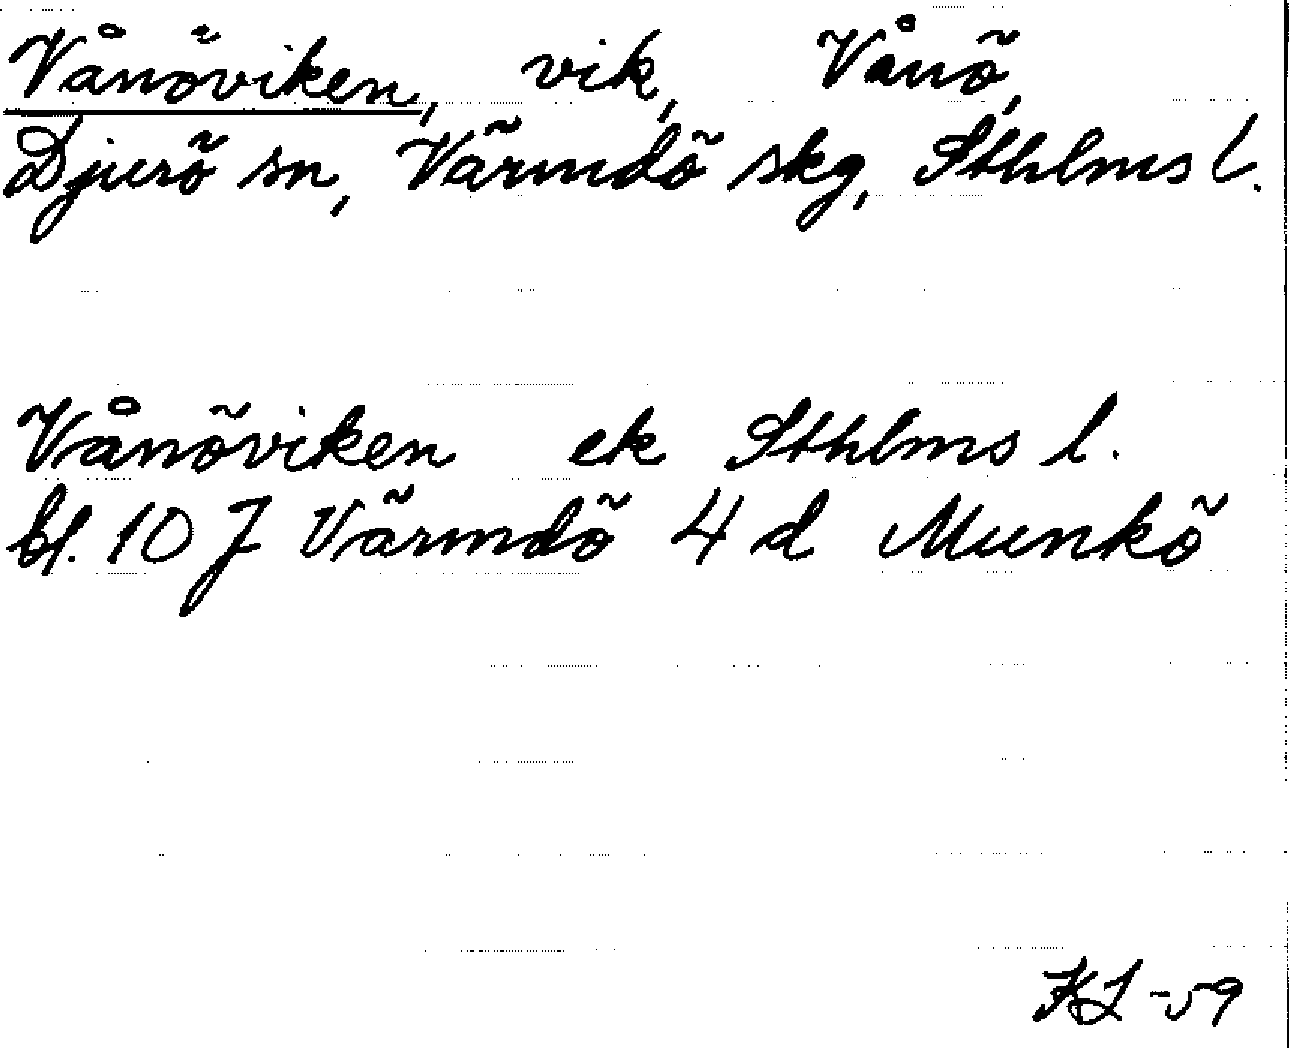 Vånöviken, vik, Vånö,
Djurö sn, Värmdö skg, Sthlms l.
Vånöviken ek Sthlms l.
bl. 10 J Värmdö 4 d Munkö
KL -59